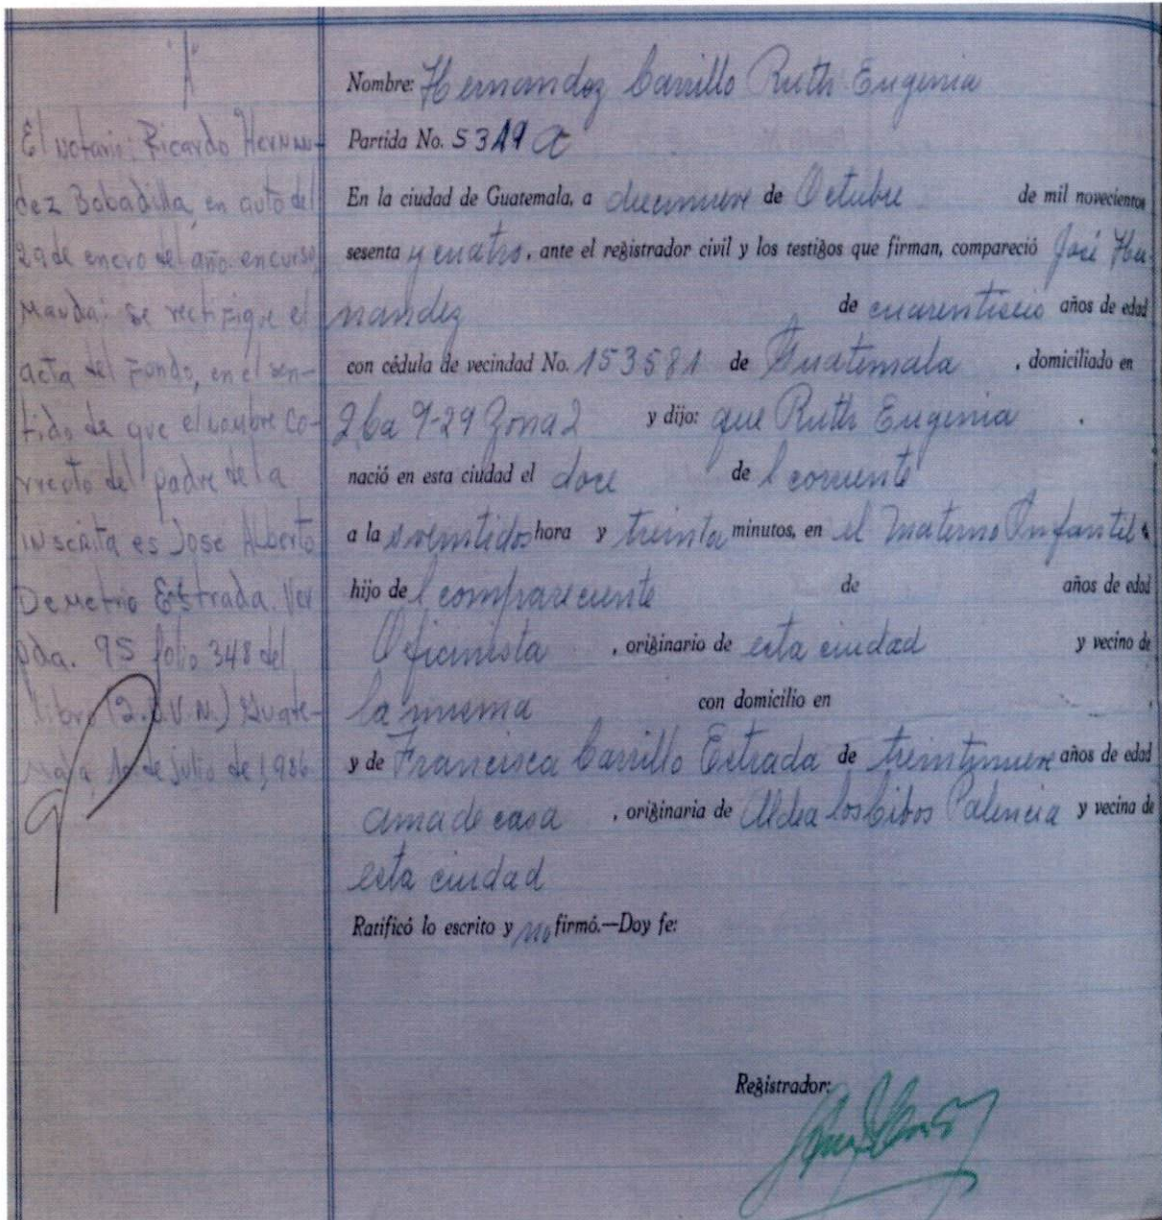 "A"
El Notario: Ricardo Hernan-
dez Bobadilla, en auto del
29 de enero del año en curso,
Manda: se rectifique el
acta del Fondo, en el sen-
tido de que el nombre co-
rrecto del padre de la
inscrita es Jose Alberto
Demetrio Estrada. Ver
pda. 95 folio 348 del
libro (2. V.N.) Guate-
mala, de julio de 1,986
Nombre: Hernandez Carrillo Ruth Eugenia
Partida No. 5319
En la ciudad de Guatemala, a diecinueve de Octubre de mil novecientos
sesenta y cuatro, ante el registrador civil y los testigos que firman, compareció José Her-
nandez de años de edad
con cédula de vecindad No. 153581 de Guatemala, domiciliado en
9-29 Zona 2 y dijo: que Ruth Eugenia.
nació en esta ciudad el doce de l corriente
a la s veintidos hora y treinta minutos, en el Materno Infantil
hijo de l compareciente de años de edad
Oficinista, originario de esta ciudad y vecino de
la misma con domicilio en
y de Francisca Carrillo Estrada de treintinueve años de edad
ama de casa, originaria de Aldea los Palencia y vecina de
esta ciudad
Ratificó lo escrito y no firmó.—Doy fe:
Registrador: